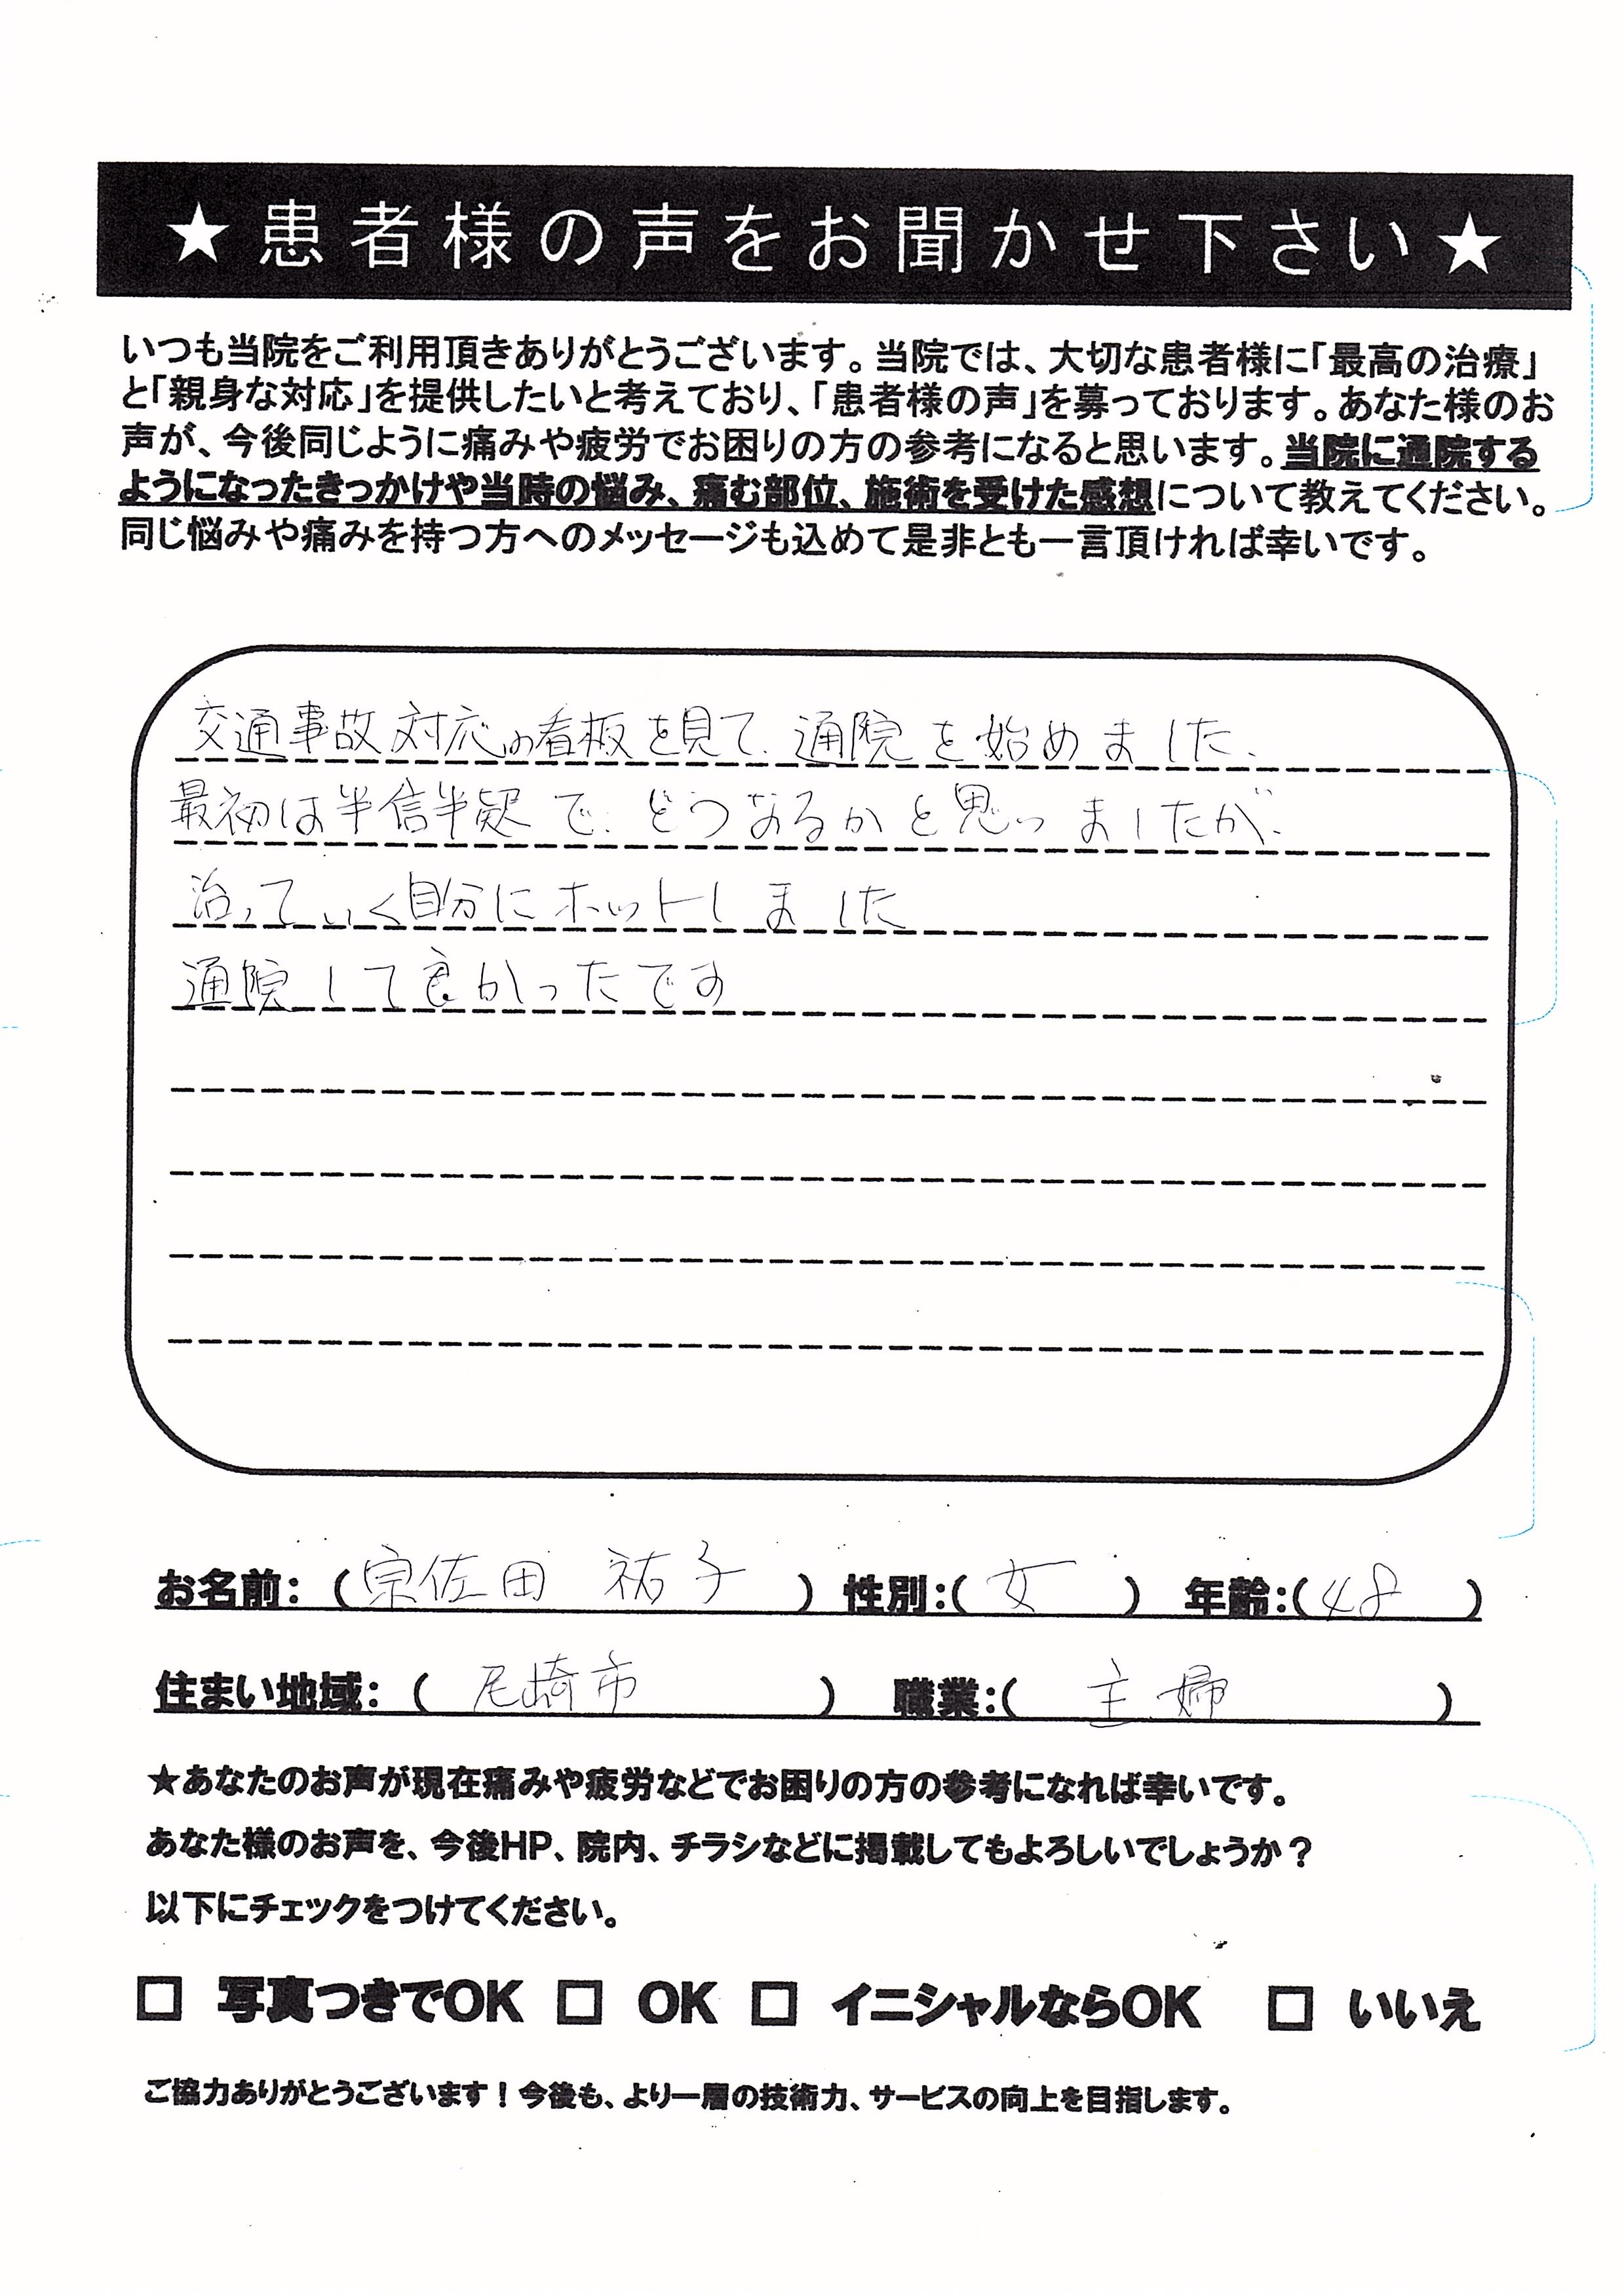 ★患者様の声をお聞かせ下さい★
いつも当院をご利用頂きありがとうございます。当院では、大切な患者様に「最高の治療」
と「親身な対応」を提供したいと考えており、「患者様の声」を募っております。あなた様のお
声が、今後同じように痛みや疲労でお困りの方の参考になると思います。当院に通院する
ようになったきっかけや当時の悩み、痛む部位、施術を受けた感想について教えてください。
同じ悩みや痛みを持つ方へのメッセージも込めて是非とも一言頂ければ幸いです。
交通事故対応の看板を見て、通院を始めました、
最初は半信半疑で、どうなるかと思っましたが、
治っていく自分にホットしました
通院して良かったです
お名前：（宗佐田 祐子）性別：（女）年齢：（48）
住まい地域：（尼崎市）職業：（主婦）
★あなたのお声が現在痛みや疲労などでお困りの方の参考になれば幸いです。
あなた様のお声を、今後HP、院内、チラシなどに掲載してもよろしいでしょうか？
以下にチェックをつけてください。
□ 写真つきでOK □ OK □ イニシャルならOK □ いいえ
ご協力ありがとうございます！今後も、より一層の技術力、サービスの向上を目指します。